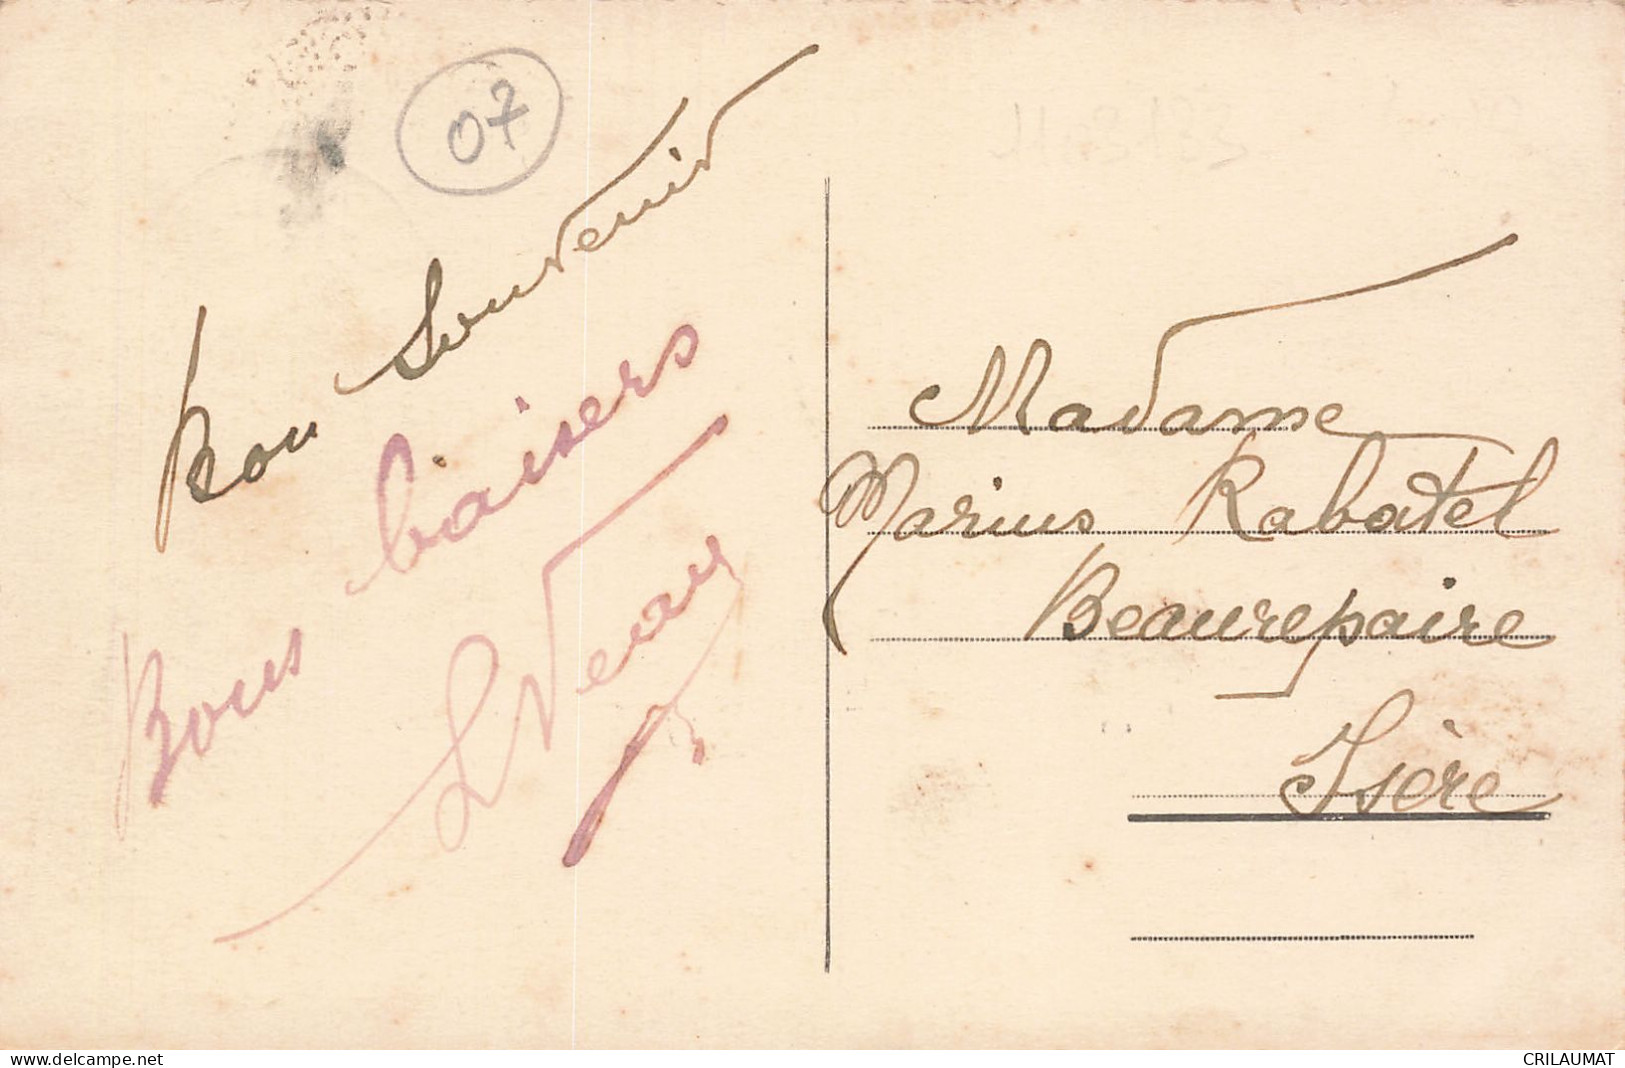 07
Bon Souvenir
Bons baisers
Madame
Marius Rabatel
Beaurepaire
Isère
delcampe.net
CRILAUMAT